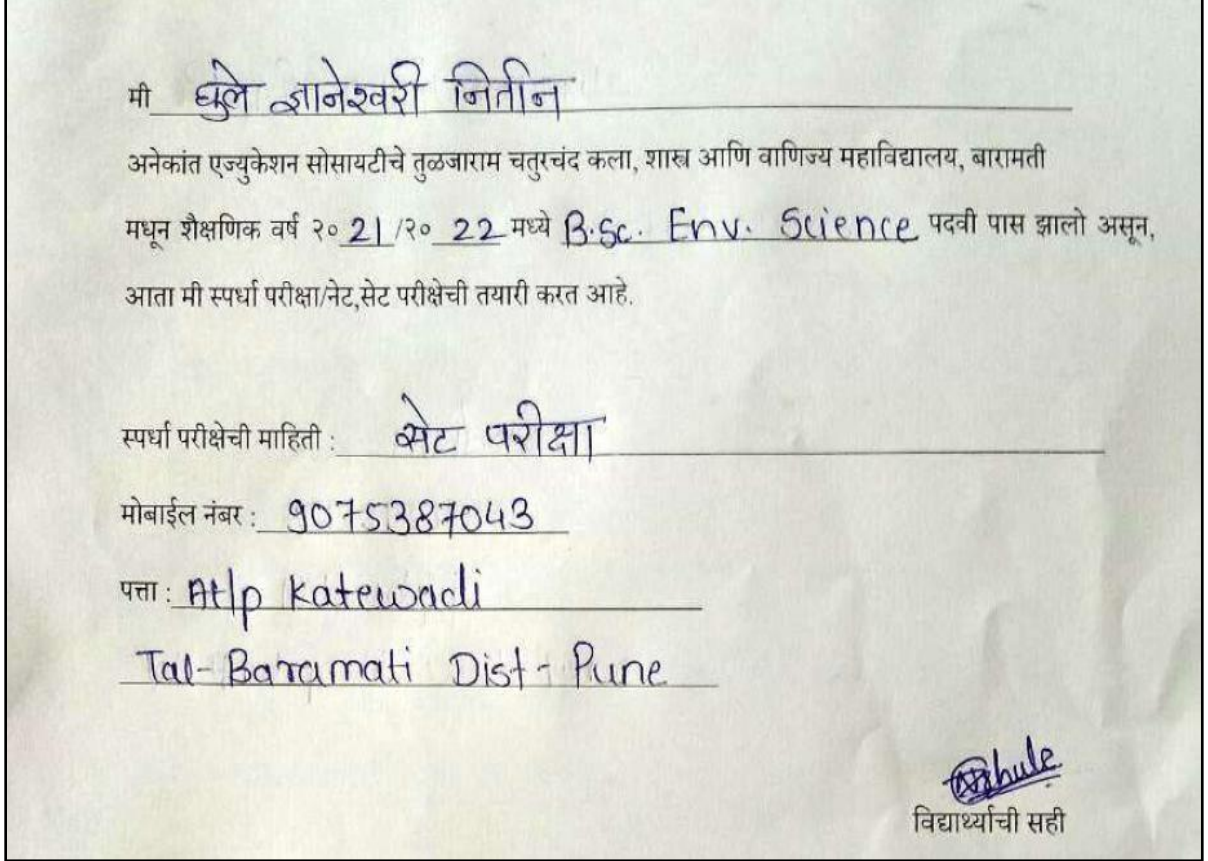 मी घुले ज्ञानेश्वरी नितीन
अनेकांत एज्युकेशन सोसायटीचे तुळजाराम चतुरचंद कला, शास्त्र आणि वाणिज्य महाविद्यालय, बारामती
मधून शैक्षणिक वर्ष २० 21 /२० 22 मध्ये B.Sc. Env. Science पदवी पास झालो असून,
आता मी स्पर्धा परीक्षा/नेट,सेट परीक्षेची तयारी करत आहे.
स्पर्धा परीक्षेची माहिती : सेट परीक्षा
मोबाईल नंबर : 9075387043
पत्ता : At/p Katewadi
Tal-Baramati Dist - Pune
विद्यार्थ्याची सही